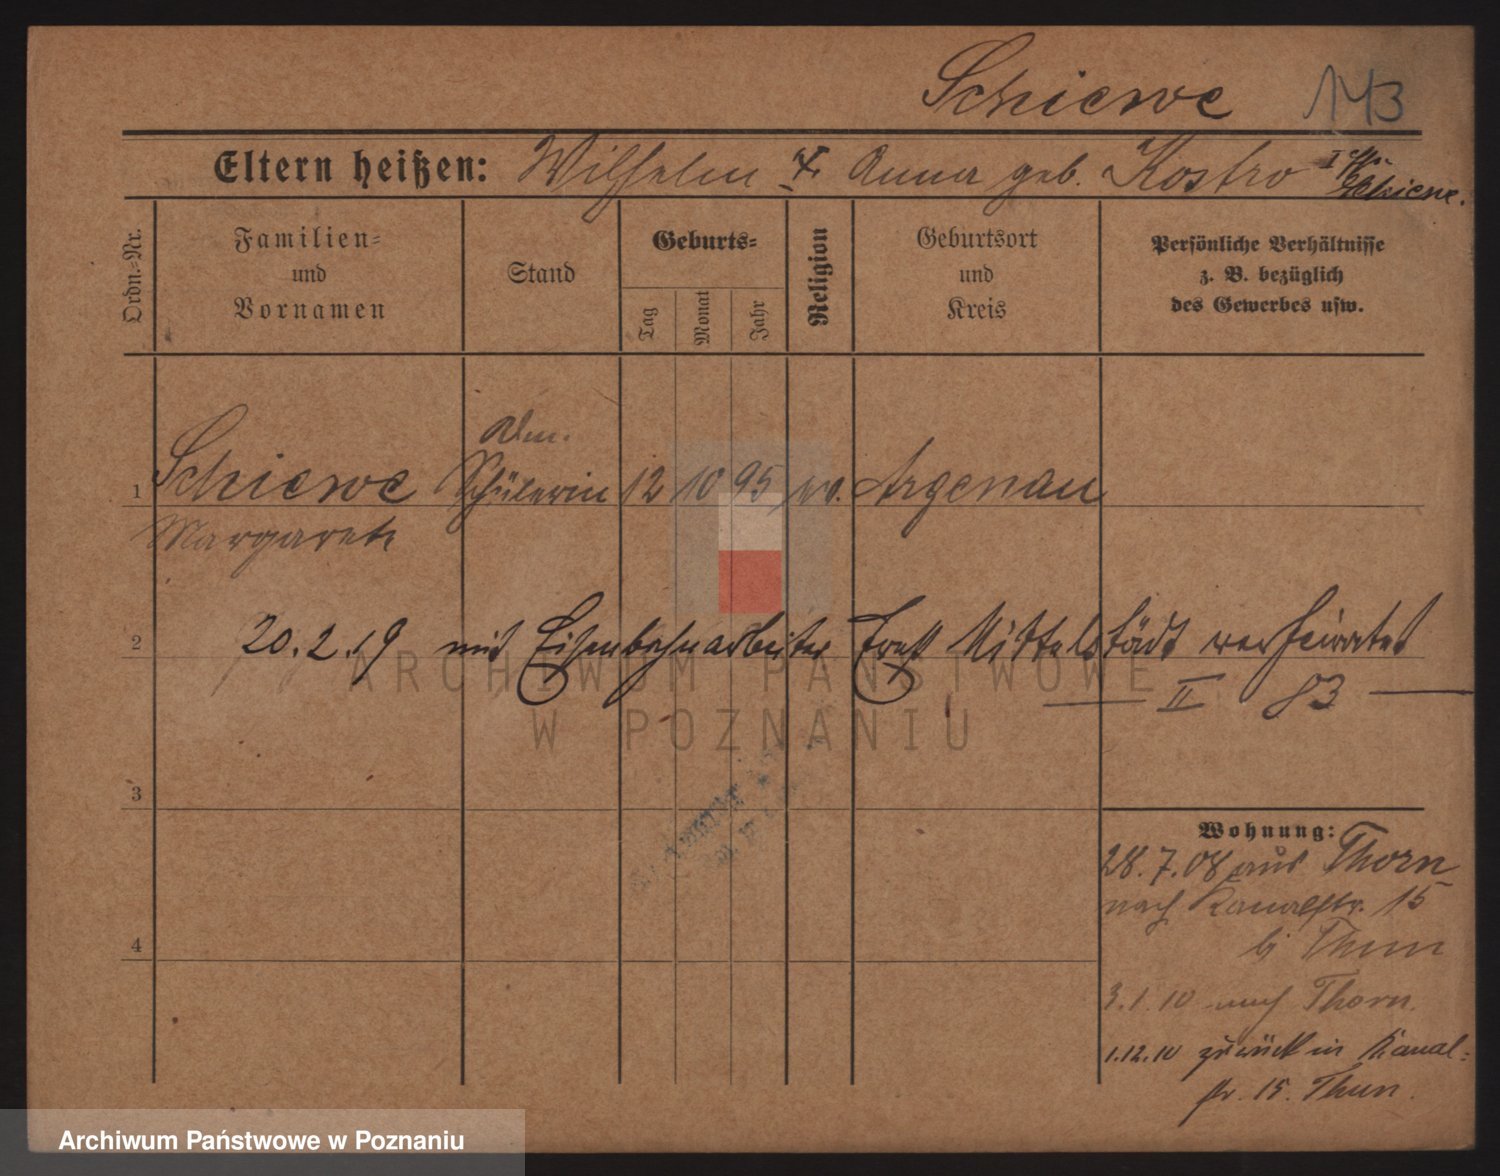 Schiewe 143
Eltern heißen: Wilhelm u. Anna geb. Kostro
Schiewe.
Ordn.-Nr.
Familien-
und
Vornamen
Stand
Geburts-
Tag
Monat
Jahr
Religion
Geburtsort
und
Kreis
Persönliche Verhältnisse
z. B. bezüglich
des Gewerbes usw.
1 Schiewe Schülerin 12 10 95 ev. Argenau
Margareth
2 20.2.19 mit Eisenbahnarbeiter Ernst Mittelstädt verheiratet
II 83
ARCHIWUM PAŃSTWOWE
W POZNANIU
3
Wohnung:
28.7.08 aus Thorn
nach Kanalstr. 15
bei Thun
4
3.1.10 nach Thorn.
1.12.10 zurück in Kanal-
str. 15. Thun.
Archiwum Państwowe w Poznaniu